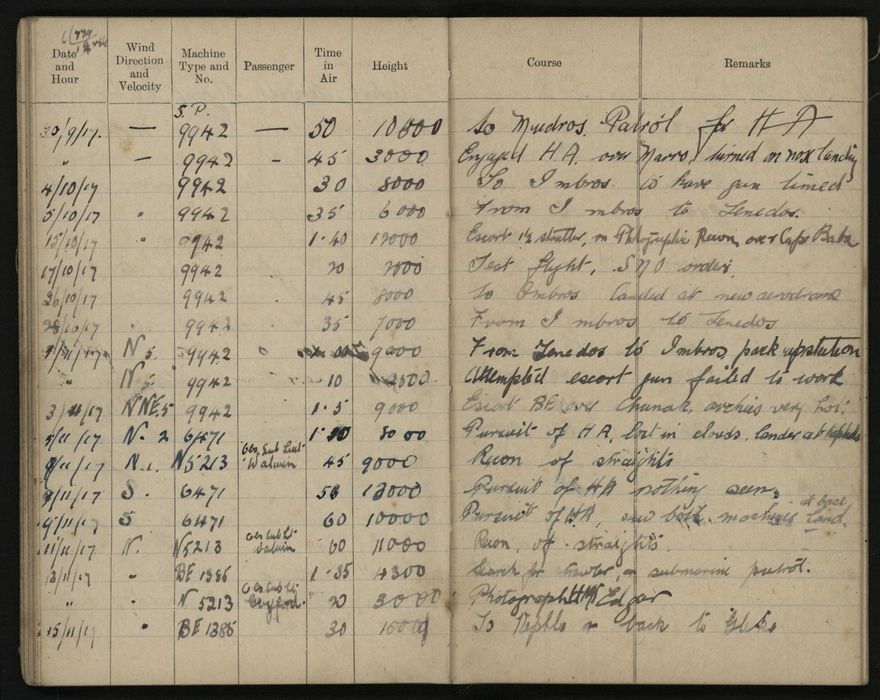 Date and Hour Wind Direction and Velocity Machine Type and No. Passenger Time in Air Height Course Remarks
S.P.
30/9/17. — 9942 — 50 10500 To Mudros Patrol for HA
" — 9942 - 45 3000 Engaged H.A. over Marro, turned on nose landing
4/10/17 9942 30 8000 To Imbros to have gun timed
5/10/17 " 9942 35 6000 From Imbros to Tenedos.
15/10/17 " 9942 1·40 12000 Escort 1½ strutter, on Photographic Recon, over Cape Baba
17/10/17 9942 20 2000 Test flight, SNO orders
26/10/17 9942 45 8000 To Imbros landed at new aerodrome
28/10/17 " 9942 35 7000 From Imbros to Tenedos
/11/17 N 5. 9942 9000 From Tenedos to Imbros,
" N 5. 9942 10 2500 Attempted escort gun failed to work
3/11/17 NNE.5 9942 1·5 9000 Escort BE over Chanak. archies very hot.
5/11/17 N. 2 6471 8000 Pursuit of HA, lost in clouds. landed at Kephalo
/11/17 N.1. N5213 Obs. Sub Lieut 45 9000 Recon of straights
/11/17 S. 6471 50 12000 Pursuit of HA nothing seen.
9/11/17 S 6471 60 10000 Pursuit of HA, saw machines land. at base
11/11/17 N. N5213 Obs Sub Lt 60 11000 Recon, of straights.
13/11/17 " BE 1386 1·35 4300 Search for on submarine patrol.
" " N 5213 Obs Sub Lt 20 3000 Photograph HMS Edgar
15/11/17 " BE 1386 30 1500 To back to